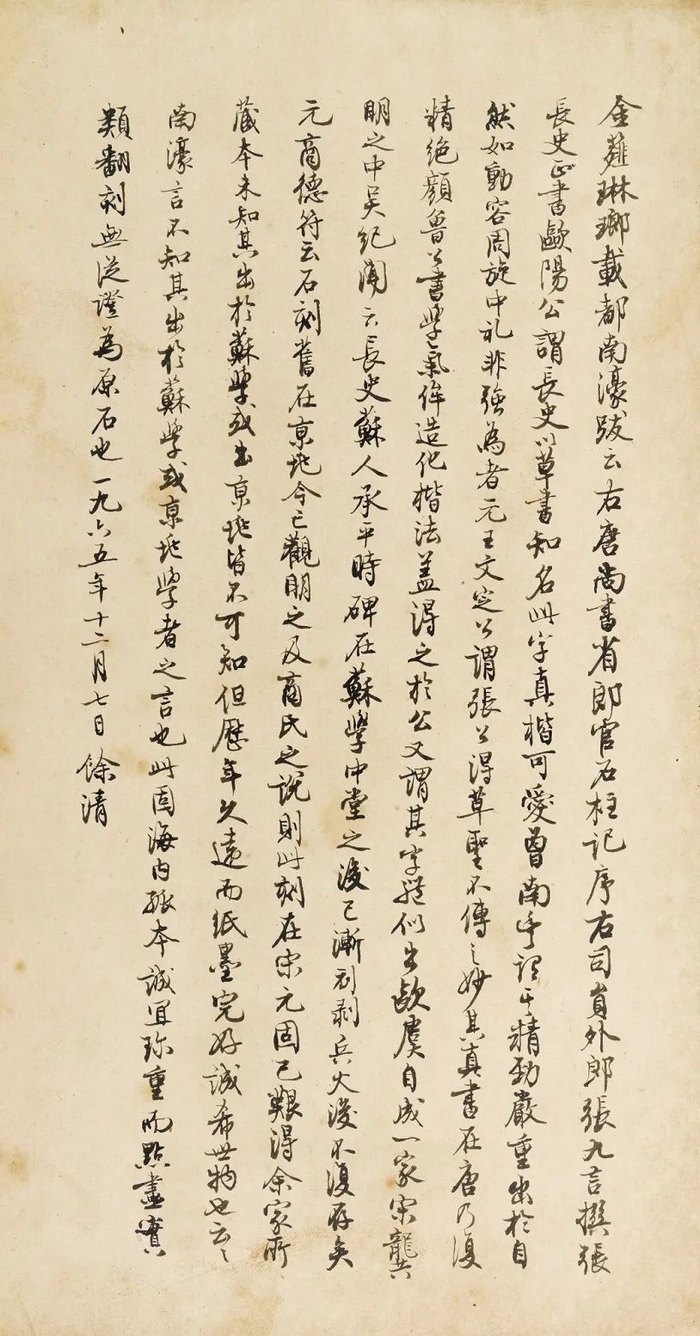 金薤琳瑯載都南濠跋云右唐尚書省郎官石柱記序右司員外郎張九言撰張
長史正書歐陽公謂長史以草書知名此字真楷可愛曾南丰謂其精勁嚴重出於自
然如動容周旋中礼非強為者元王文定公謂張公得草聖不傳之妙其真書在唐乃復
精絕顏魯公書學氣侔造化楷法盖得之於公又謂其字體似出歐虞自成一家宋龔
明之中吳紀聞云長史蘇人承平時碑在蘇學中堂之後已漸刓剥兵火後不復存矣
元商德符云石刻舊在京兆今已觀明之及商氏之說則此刻在宋元固已艱得余家所
藏本未知其出於蘇學或出京兆皆不可知但歷年久遠而紙墨完好誠希世物也云云
南濠言不知其出於蘇學或京兆學者之言也此固海内孤本誠宜珍重而點畫實
類翻刻無從證為原石也一九六五年十二月七日餘清